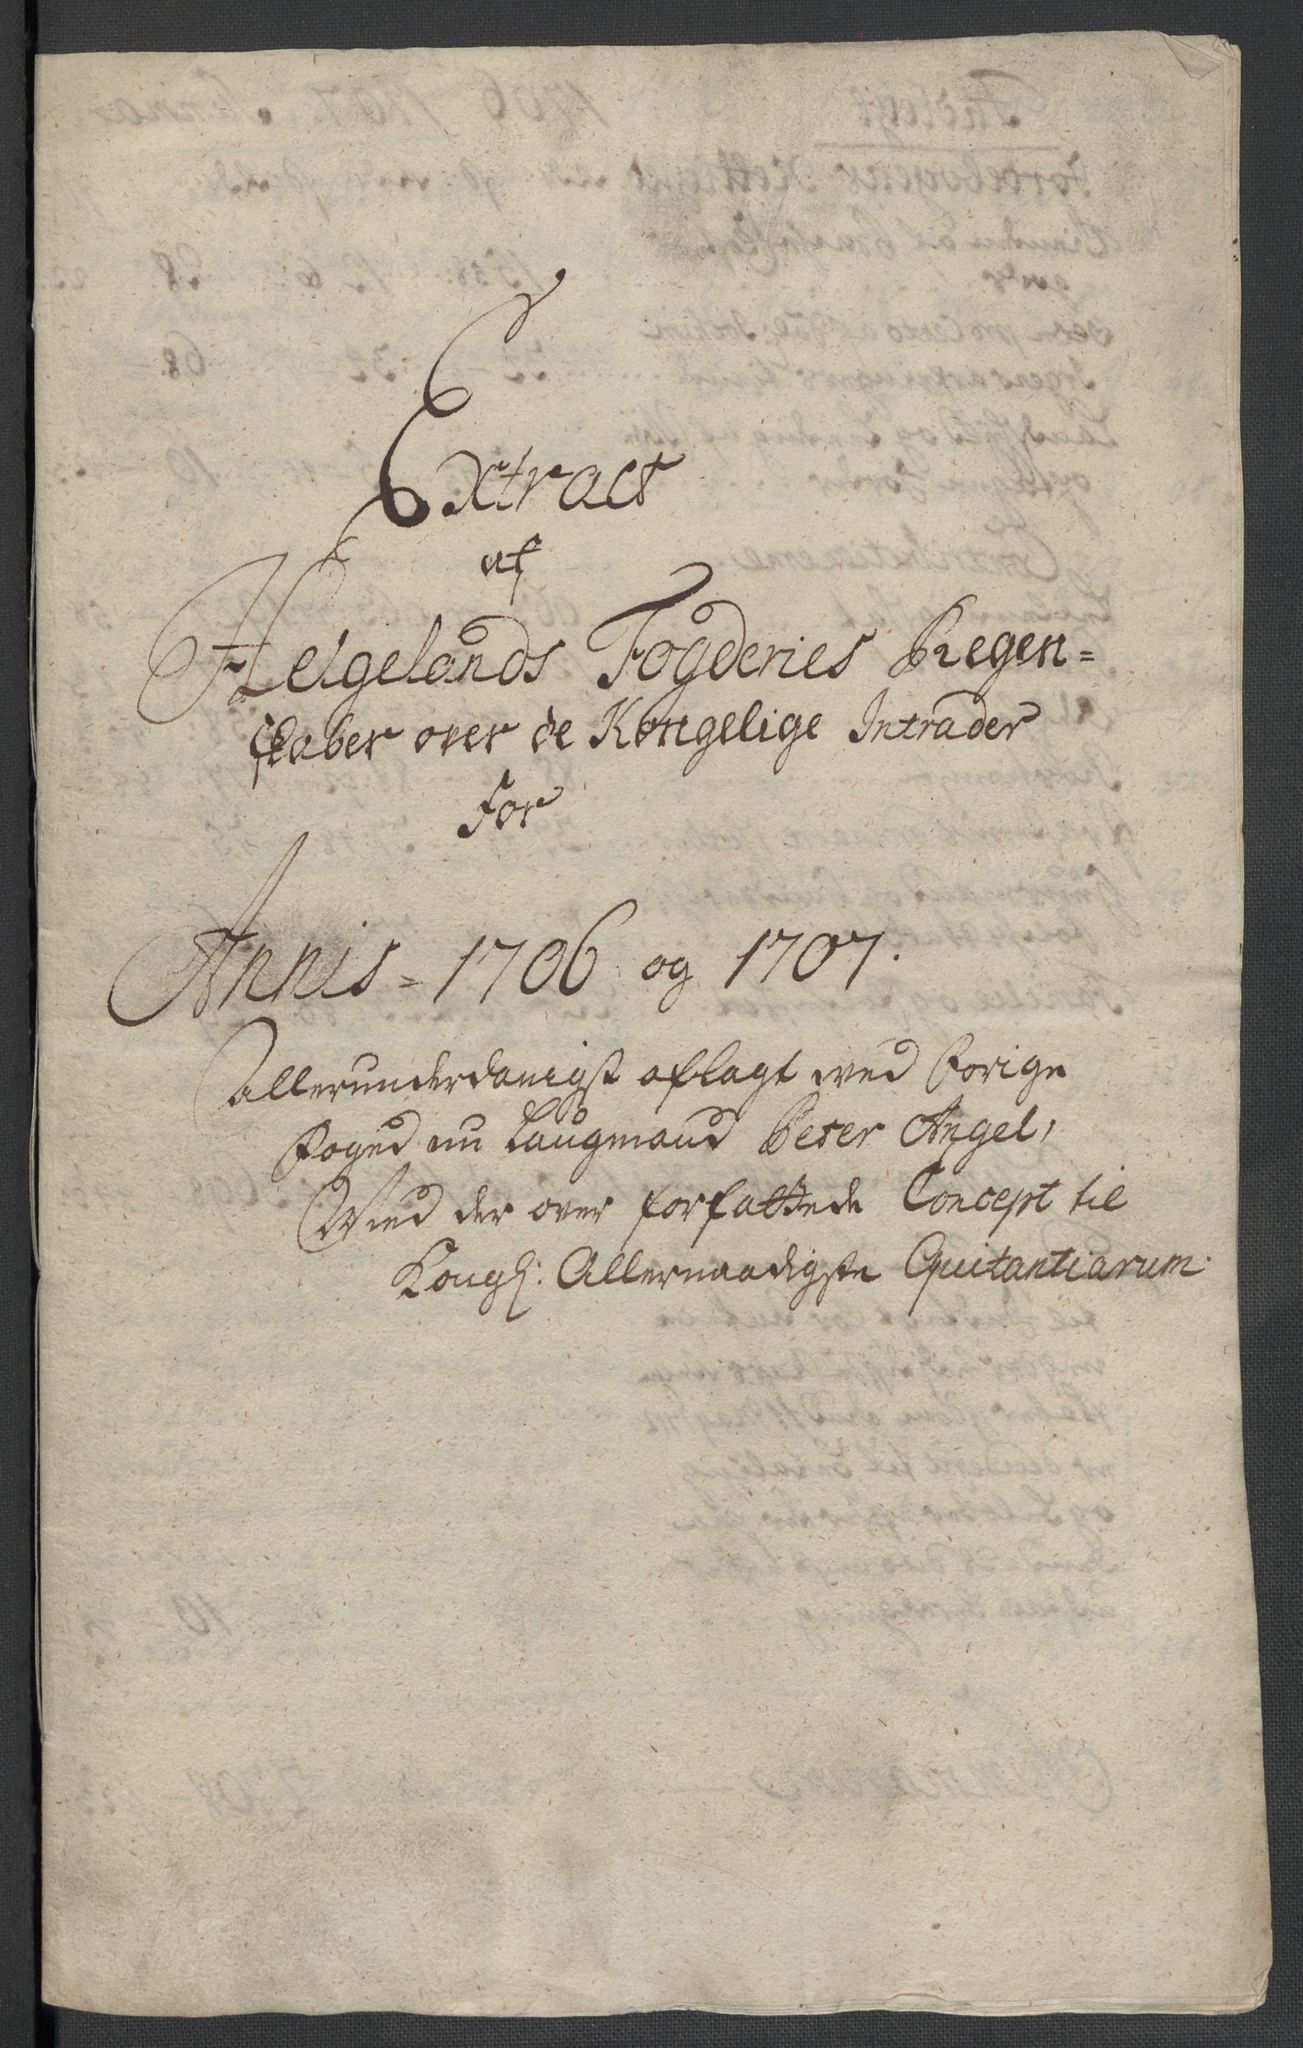 Extract
af
Helgelands Fogderies Regen=
skaber over de Kongelige Intrader
for
Annis = 1706 og 1707.
Allerunderdanigst aflagt ved forige
foged nu Laugmand Peter Angel,
Med der over forfattede Concept til
Kongl: Allernaadigste Quitantiarum.